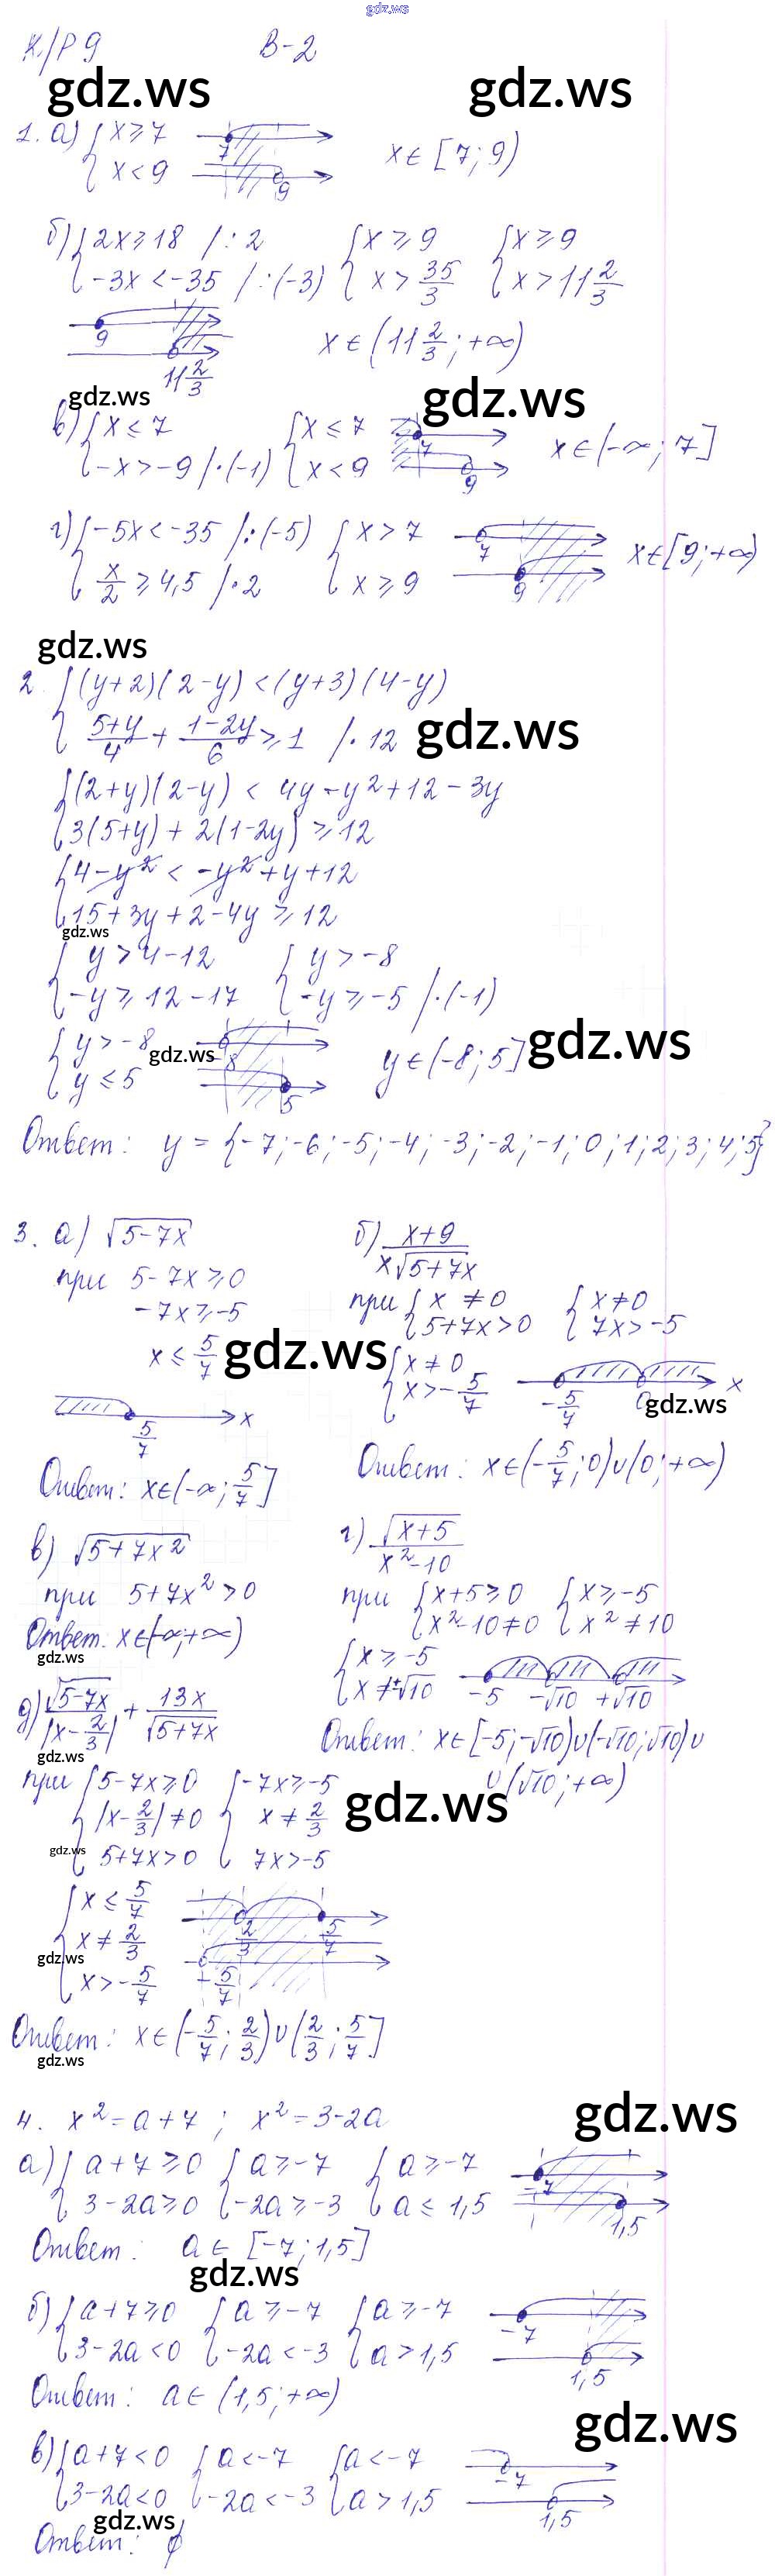 gdz.ws
К/Р 9 В-2
gdz.ws gdz.ws
1. а) { x ≥ 7
x < 9
7
9
x ∈ [7; 9)
б) { 2x ≥ 18 /: 2 { x ≥ 9 { x ≥ 9
-3x < -35 /: (-3) x > 35/3 x > 11 2/3
9
11 2/3
x ∈ (11 2/3; +∞)
gdz.ws gdz.ws
в) { x ≤ 7 { x ≤ 7
-x > -9 /·(-1) x < 9
7
9
x ∈ (-∞; 7]
г) { -5x < -35 /: (-5) { x > 7
x/2 ≥ 4,5 /·2 x ≥ 9
7
9
x ∈ [9; +∞)
gdz.ws
2. { (y+2)(2-y) < (y+3)(4-y)
(5+y)/4 + (1-2y)/6 ≥ 1 /· 12
gdz.ws
{ (2+y)(2-y) < 4y - y² + 12 - 3y
3(5+y) + 2(1-2y) ≥ 12
{ 4 - y² < -y² + y + 12
15 + 3y + 2 - 4y ≥ 12
gdz.ws
{ y > 4-12 { y > -8
-y ≥ 12-17 -y ≥ -5 /·(-1)
{ y > -8
y ≤ 5
gdz.ws
-8
5
y ∈ (-8; 5]
gdz.ws
Ответ: y = {-7; -6; -5; -4; -3; -2; -1; 0; 1; 2; 3; 4; 5}
3. а) √(5-7x)
при 5-7x ≥ 0
-7x ≥ -5
x ≤ 5/7
gdz.ws
5/7 x
Ответ: x ∈ (-∞; 5/7]
б) (x+9)/(x√(5+7x))
при { x ≠ 0 { x ≠ 0
5+7x > 0 7x > -5
{ x ≠ 0
x > -5/7
-5/7 0 x
gdz.ws
Ответ: x ∈ (-5/7; 0) ∪ (0; +∞)
в) √(5+7x²)
при 5+7x² > 0
Ответ: x ∈ (-∞; +∞)
gdz.ws
г) √(x+5)/(x²-10)
при { x+5 ≥ 0 { x ≥ -5
x²-10 ≠ 0 x² ≠ 10
{ x ≥ -5
x ≠ ±√10
-5 -√10 +√10
Ответ: x ∈ [-5; -√10) ∪ (-√10; √10) ∪
∪ (√10; +∞)
д) √(5-7x)/|x-2/3| + 13x/√(5+7x)
gdz.ws
при { 5-7x ≥ 0 { -7x ≥ -5
|x-2/3| ≠ 0 x ≠ 2/3
5+7x > 0 7x > -5
gdz.ws
gdz.ws
{ x ≤ 5/7
x ≠ 2/3
x > -5/7
gdz.ws
2/3 5/7
-5/7
Ответ: x ∈ (-5/7; 2/3) ∪ (2/3; 5/7]
gdz.ws
4. x² = a+7; x² = 3-2a
gdz.ws
а) { a+7 ≥ 0 { a ≥ -7 { a ≥ -7
3-2a ≥ 0 -2a ≥ -3 a ≤ 1,5
-7
1,5
Ответ: a ∈ [-7; 1,5]
gdz.ws
б) { a+7 ≥ 0 { a ≥ -7 { a ≥ -7
3-2a < 0 -2a < -3 a > 1,5
-7
1,5
Ответ: a ∈ (1,5; +∞)
gdz.ws
в) { a+7 < 0 { a < -7 { a < -7
3-2a < 0 -2a < -3 a > 1,5
-7
1,5
gdz.ws
Ответ: ∅